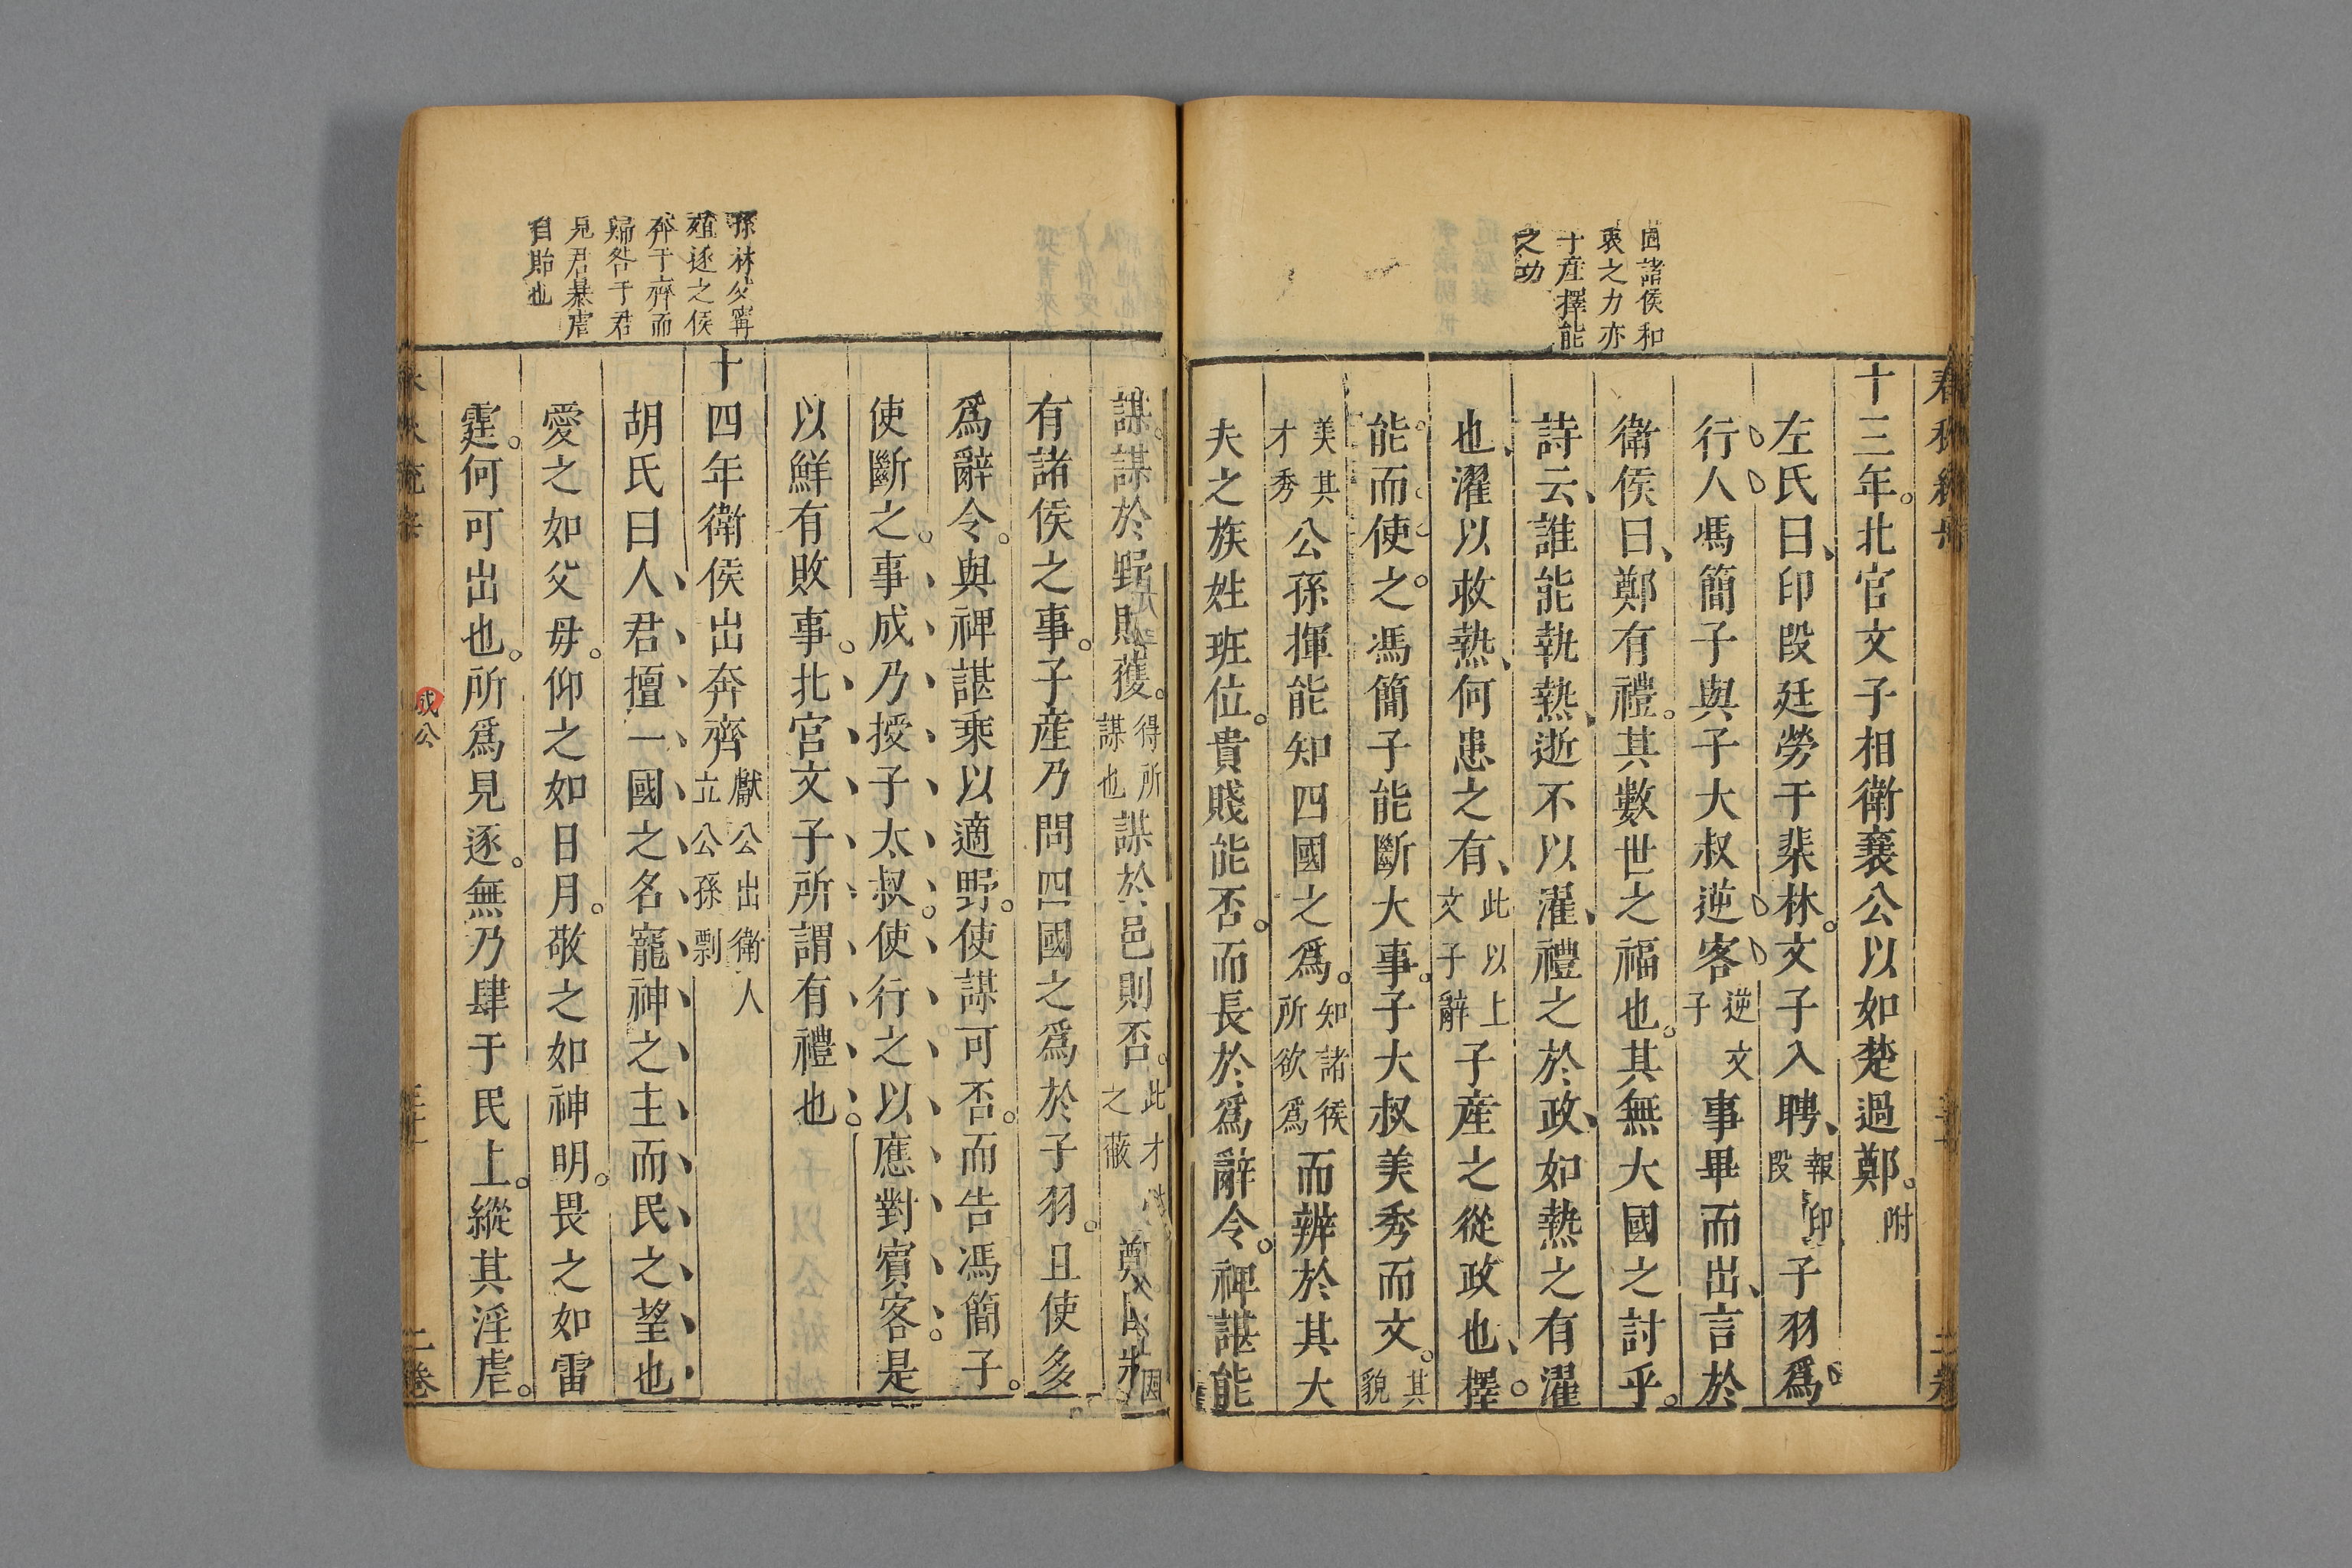 固諸侯和
衷之力亦
子産擇能
之功
十三年。北宫文子相衛襄公以如楚過鄭。附
左氏曰、印段廷勞于棐林。文子入聘、報印段子羽爲
行人馮簡子與子大叔逆客逆文子事畢而出、言於
衛侯曰、鄭有禮。其數世之福也。其無大國之討乎。
詩云、誰能執熱、逝不以濯、禮之於政、如熱之有濯
也、濯以救熱、何患之有、此以上文子辭子産之從政也、擇。
能。而。使。之。馮簡子能斷大事。子大叔美秀而文。其貌
美其才秀公孫揮能知四國之爲。知諸侯所欲爲而辨於其大
夫之族姓班位。貴賤能否。而長於爲辭令。裨諶能
謀。謀於野則獲。得所謀也謀於邑則否。此才性之蔽鄭
有諸侯之事。子産乃問四國之爲於子羽。且使多
爲辭令。與裨諶乘以適野。使謀可否。而告馮簡子。
使斷之。事成乃授子太叔。使行之以應對賓客。是
以鮮有敗事。北宫文子所謂有禮也。
孫林父甯
殖逐之侯
奔于齊而
歸咎于君
見君暴虐
自貽也
十四年衛侯出奔齊獻公出衛人立公孫剽
胡氏曰人君擅一國之名寵神之主而民之望也
愛之如父母。仰之如日月。敬之如神明。畏之如雷
霆。何可出也。所爲見逐。無乃肆于民上。縱其淫虐。
成公
二卷